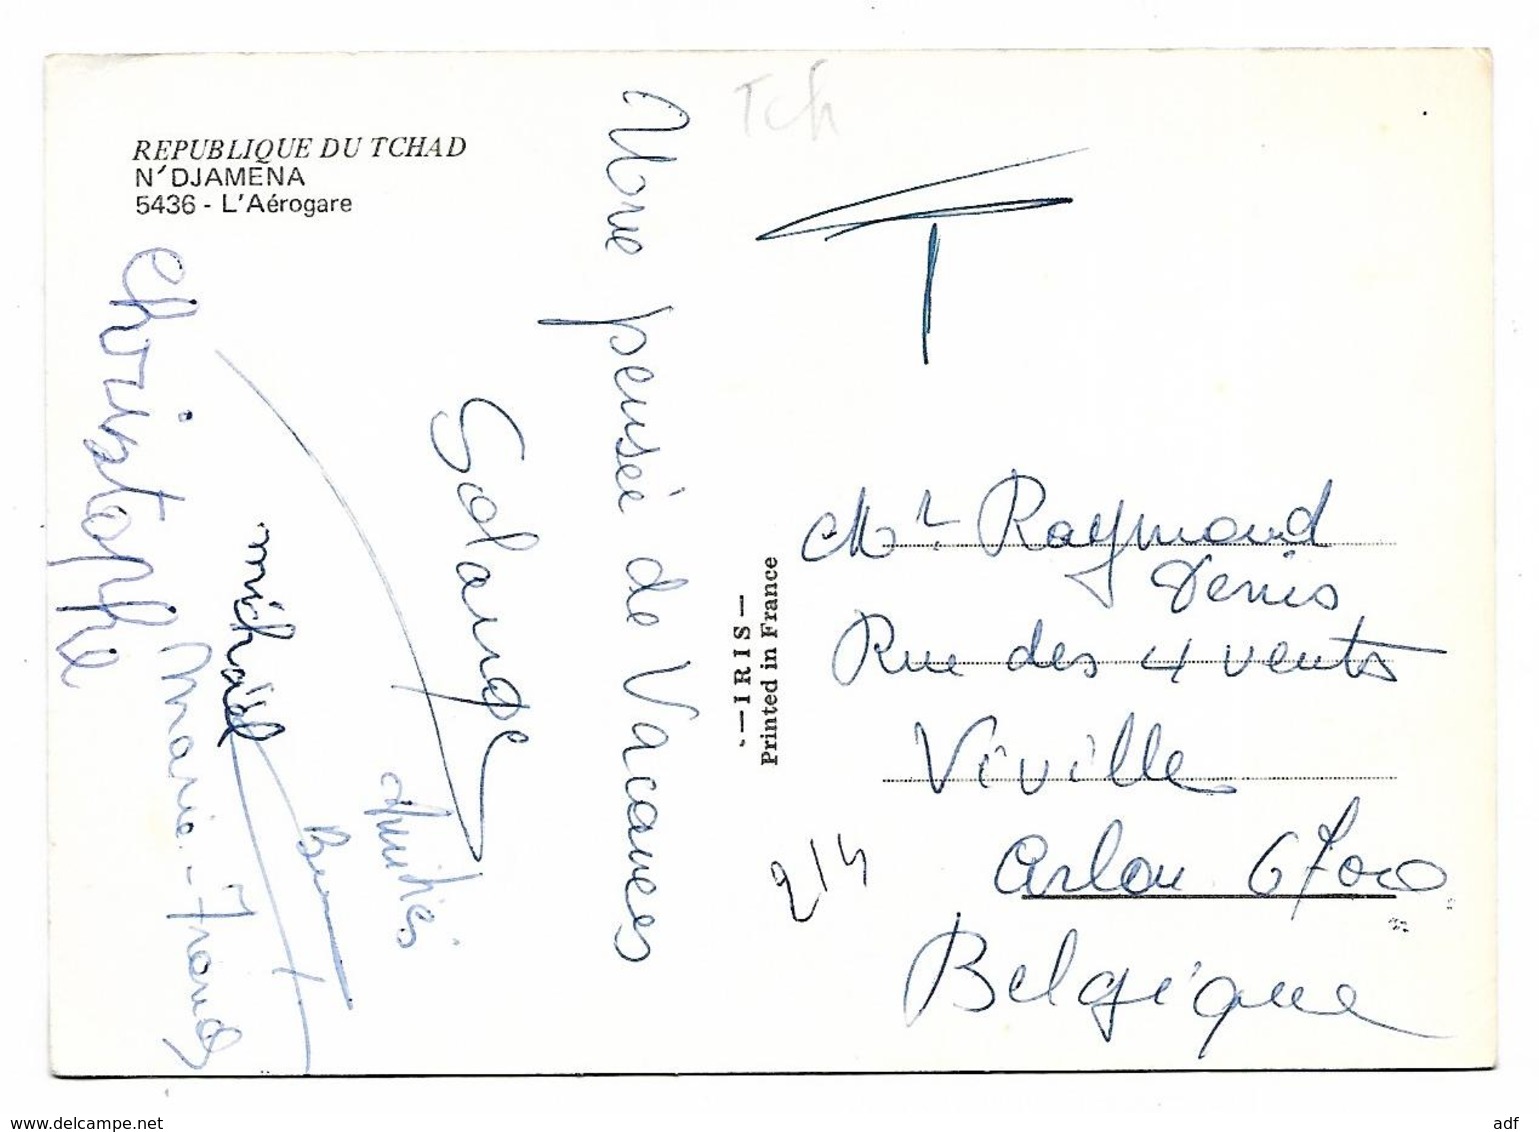 REPUBLIQUE DU TCHAD
N'DJAMENA
5436 - L'Aérogare
Une pensée de Vacances
Solange
Amitiés
michaël
Marie-Franç
Christophe
Tch
T
— IRIS —
Printed in France
Mr. Raymond
Denis
Rue des 4 vents
Viville
Arlon 6700
Belgique
214
www.delcampe.net
adf